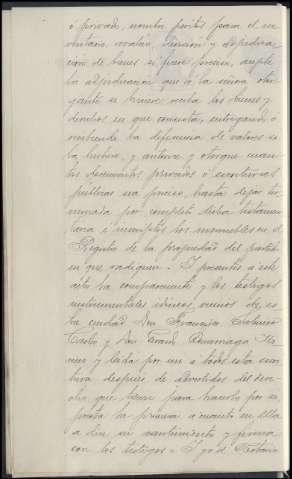 ó privado, nombre peritos para el in
ventario, avalúo, división y adjudica
ción de bienes si fuere preciso, acepte
la adjudicación que á la misma otor
gante se hiciere, reciba los bienes y
derechos en que consista, entregando ó
recibiendo la diferencia de valores si
la hubiere, y autorice y otorgue cuan
tos documentos privados ó escrituras
públicas sea preciso, hasta dejar ter
minada por completo dicha testamen
taría é inscriptos los inmuebles en el
Registro de la propiedad del partido
en que radiquen. = Y presentes á este
acto la compareciente y los testigos
instrumentales idóneos, vecinos de es
ta ciudad Don Francisco
Castro y Don
y leída por mi a todos esta escri
tura después de advertidos del dere
cho que tienen para hacerlo por sí,
presta la primera
á dar su consentimiento y firma
con los testigos. = Y yo el Notario